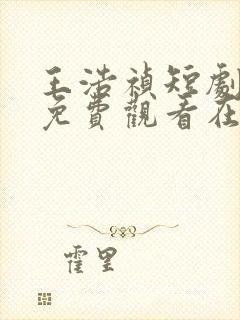 王浩禎短劇
免費觀看在
霍里